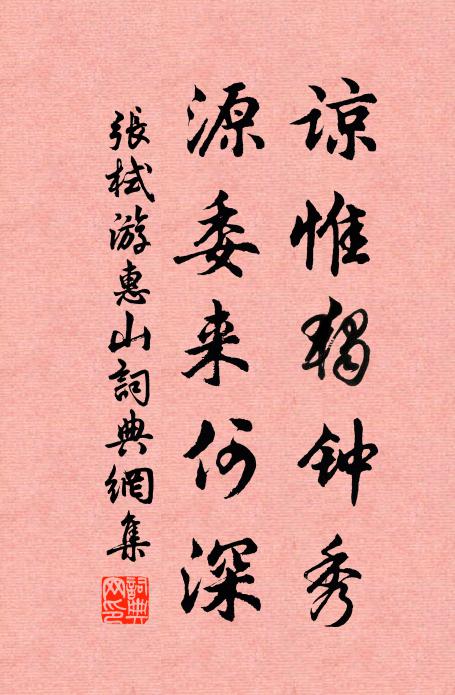 谅惟独钟秀
源委来何深
張栻游惠山詞典網集
詞典網印